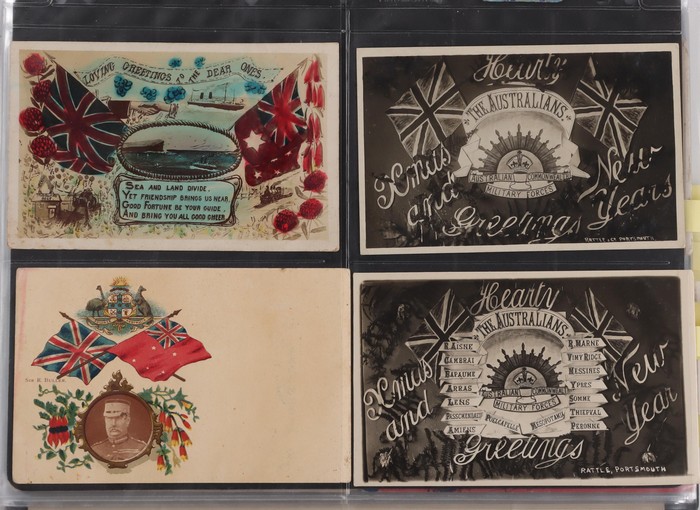 LOVING GREETINGS TO THE DEAR ONES
SEA AND LAND DIVIDE,
YET FRIENDSHIP BRINGS US NEAR,
GOOD FORTUNE BE YOUR GUIDE,
AND BRING YOU ALL GOOD CHEER.
Hearty
THE AUSTRALIANS
AUSTRALIAN COMMONWEALTH
MILITARY FORCES
Xmas
and
New
Years
Greetings
RATTLE, CO. PORTSMOUTH
SIR R. BULLER.
Hearty
THE AUSTRALIANS
R. AISNE
CAMBRAI
BAPAUME
ARRAS
LENS
PASSCHENDAELE
AMIENS
R. MARNE
VIMY RIDGE
MESSINES
YPRES
SOMME
THIEPVAL
PERONNE
AUSTRALIAN COMMONWEALTH
MILITARY FORCES
POELCAPELLE
MESOPOTAMIA
Xmas
and
New
Year
Greetings
RATTLE, PORTSMOUTH